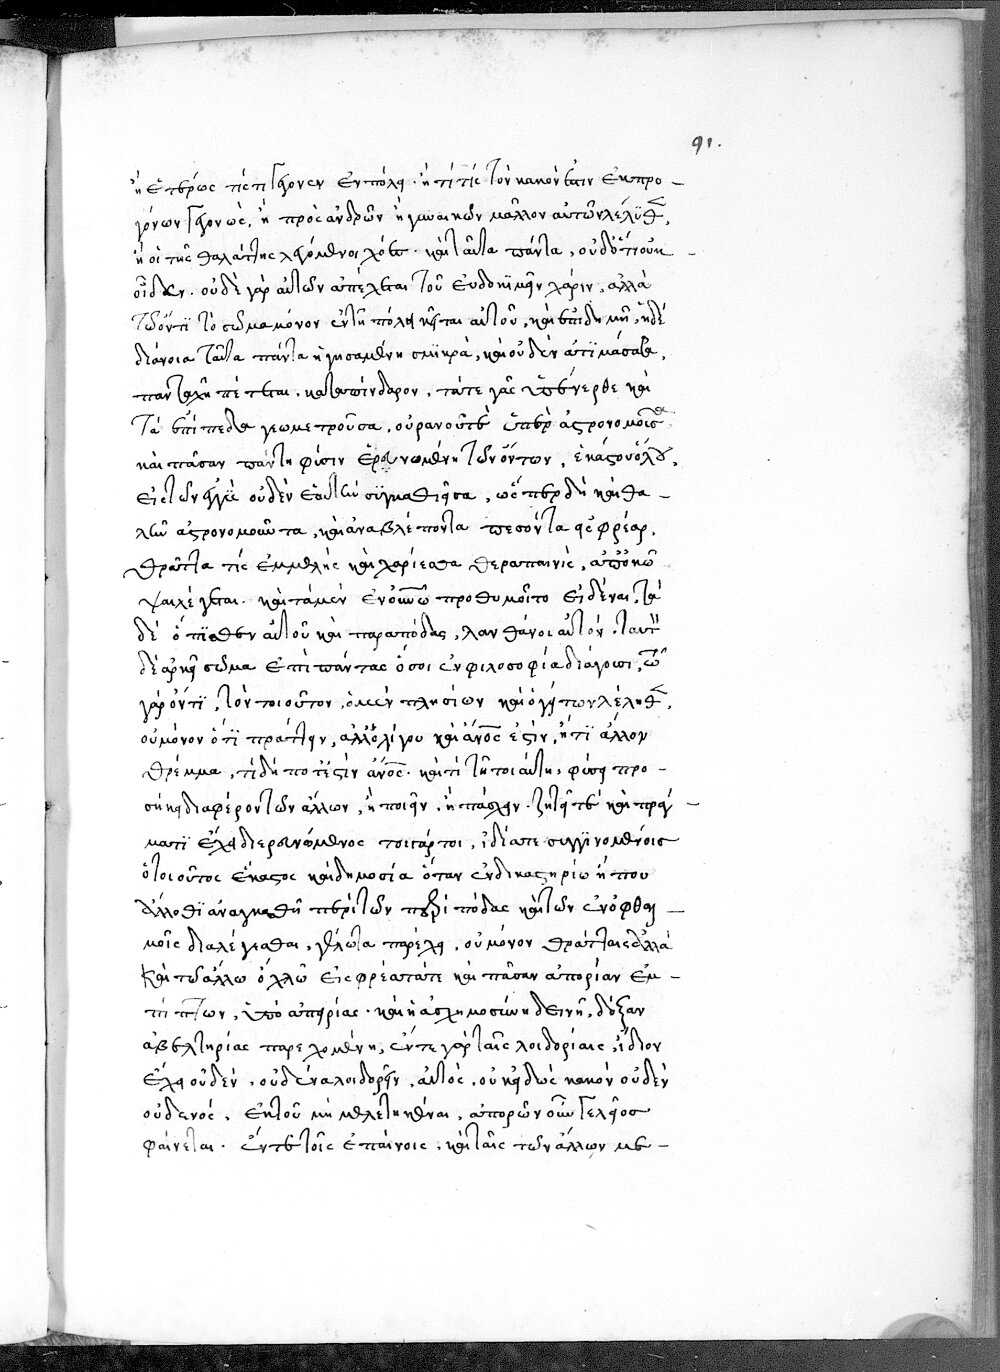 91.
ἢ ἑτέρως τίς τι γέγονεν ἐν πόλει. ἢ τί τίς τὸν κακόν ἐστιν ἐκ προ—
γόνων γεγονὼς, ἢ πρὸς ἀνδρῶν ἢ γυναικῶν μᾶλλον αὐτῶν λέληθε,
ἢ οἱ τῆς θαλάττης λεγόμενοι χόες. καὶ ταῦτα πάντα, οὐδ' ὅτι οὐκ
οἶδεν. οὐδὲ γὰρ αὐτῶν ἀπέχεται τοῦ εὐδοκιμεῖν χάριν, ἀλλὰ
τῷ ὄντι τὸ σῶμα μόνον ἐν τῇ πόλει κεῖται αὐτοῦ, καὶ ἐπιδημεῖ, ἡ δὲ
διάνοια ταῦτα πάντα ἡγησαμένη σμικρὰ, καὶ οὐδὲν ἀτιμάσασα,
πανταχῇ πέτεται, κατὰ πίνδαρον, τά τε γᾶς ὑπένερθε καὶ
τὰ ἐπίπεδα γεωμετροῦσα, οὐρανοῦ τε ὕπερ ἀστρονομοῦσα
καὶ πᾶσαν πάντη φύσιν ἐρευνωμένη τῶν ὄντων, ἑκάστου ὅλου,
εἰς τῶν ἐγγὺς οὐδὲν ἑαυτὴν συγκαθιεῖσα, ὥσπερ δὴ καὶ θα—
λῆν ἀστρονομοῦντα, καὶ ἀναβλέποντα πεσόντα εἰς φρέαρ,
θρᾷττά τις ἐμμελὴς καὶ χαρίεσσα θεραπαινὶς, ἀποσκῶ
ψαι λέγεται. καὶ τὰ μὲν ἐν οὐρανῷ προθυμοῖτο εἰδέναι, τὰ
δὲ ὄπισθεν αὐτοῦ καὶ παρὰ πόδας, λανθάνοι αὐτόν. ταυτὸν
δὲ ἀρκεῖ σῶμα ἐπὶ πάντας ὅσοι ἐν φιλοσοφίᾳ διάγουσι, τῷ
γὰρ ὄντι, τὸν τοιοῦτον, ὁ μὲν πλησίον καὶ ὁ γείτων λέληθε,
οὐ μόνον ὅτι πράττει, ἀλλ' ὀλίγου καὶ ἄνος ἐστὶν, ἤ τι ἄλλον
θρέμμα, τί δή ποτ' ἐστὶν ἄνος. καὶ τί τῇ τοιαύτῃ, φύσει προ—
σήκει διαφέρον τῶν ἄλλων, ἢ ποιεῖν, ἢ πάσχειν. ζητεῖ τε καὶ πράγ—
ματι ἔχει διερευνώμενος τοιγάρτοι, ἰδίᾳ τε συγγινομένοις
ὁ τοιοῦτος ἕκαστος καὶ δημοσίᾳ ὅταν ἐν δικαστηρίῳ ἤ που
ἄλλοθι ἀναγκασθῇ περὶ τῶν παρὰ πόδας καὶ τῶν ἐν ὀφθαλ—
μοῖς διαλέγεσθαι, γέλωτα παρέχει, οὐ μόνον θρᾴτταις ἀλλὰ
καὶ τῷ ἄλλῳ ὄχλῳ εἰς φρέατά τε καὶ πᾶσαν ἀπορίαν ἐμ—
πίπτων, ὑπὸ ἀπειρίας. καὶ ἡ ἀσχημοσύνη δεινὴ, δόξαν
ἀβελτηρίας παρεχομένη, ἔν τε γὰρ ταῖς λοιδορίαις, ἴδιον
ἔχει οὐδὲν, οὐδένα λοιδορεῖν, αὐτὸς, οὐκ εἰδὼς κακὸν οὐδὲν
οὐδενός, ἐκ τοῦ μὴ μελετηκέναι, ἀπορῶν οὖν γελοῖος
φαίνεται. ἔν τε τοῖς ἐπαίνοις, καὶ ταῖς τῶν ἄλλων με—